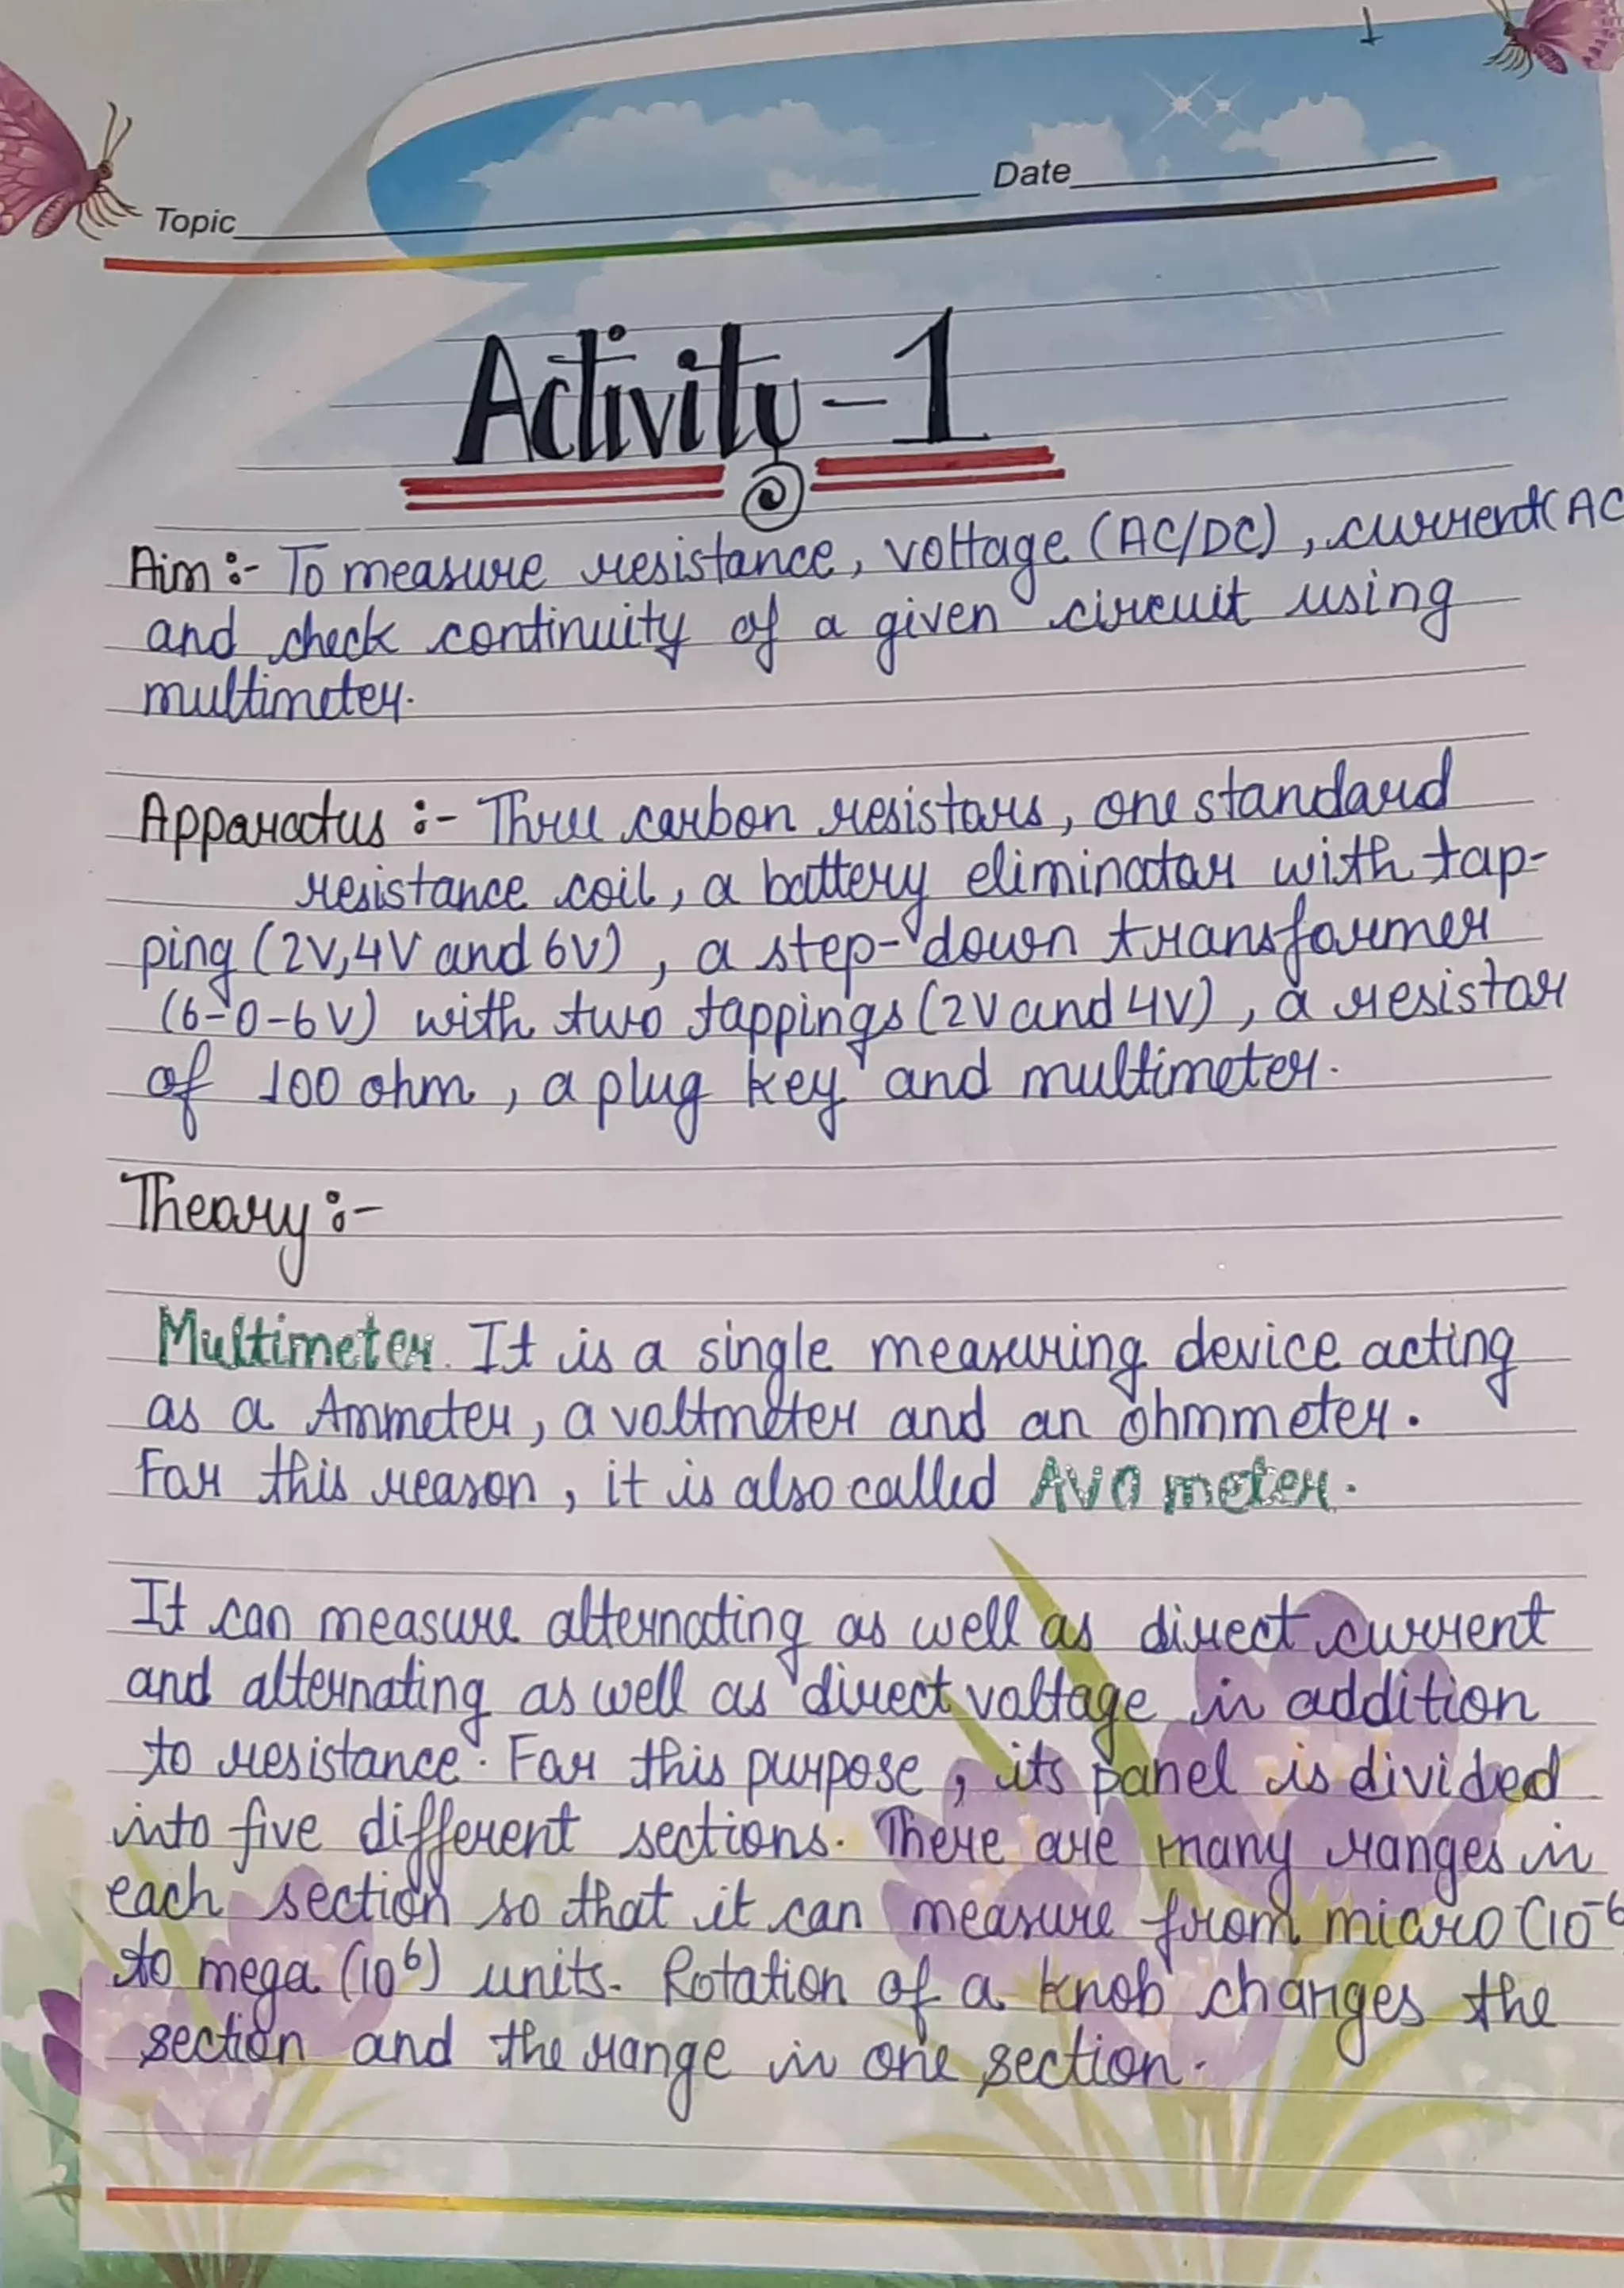 1
Date
Topic
Activity-1
Aim :- To measure resistance, voltage (AC/DC), current (AC
and check continuity of a given circuit using
multimeter.
Apparatus :- Three carbon resistors, one standard
resistance coil, a battery eliminator with tap-
ping (2V,4V and 6V), a step-down transformer
(6-0-6V) with two tappings (2V and 4V), a resistor
of 100 ohm, a plug key and multimeter.
Theory :-
Multimeter. It is a single measuring device acting
as a Ammeter, a voltmeter and an ohmmeter.
For this reason, it is also called AVO meter.
It can measure alternating as well as direct current
and alternating as well as direct voltage in addition
to resistance. For this purpose, its panel is divided
into five different sections. There are many ranges in
each section so that it can measure from micro (10⁻⁶
to mega (10⁶) units. Rotation of a knob changes the
section and the range in one section.